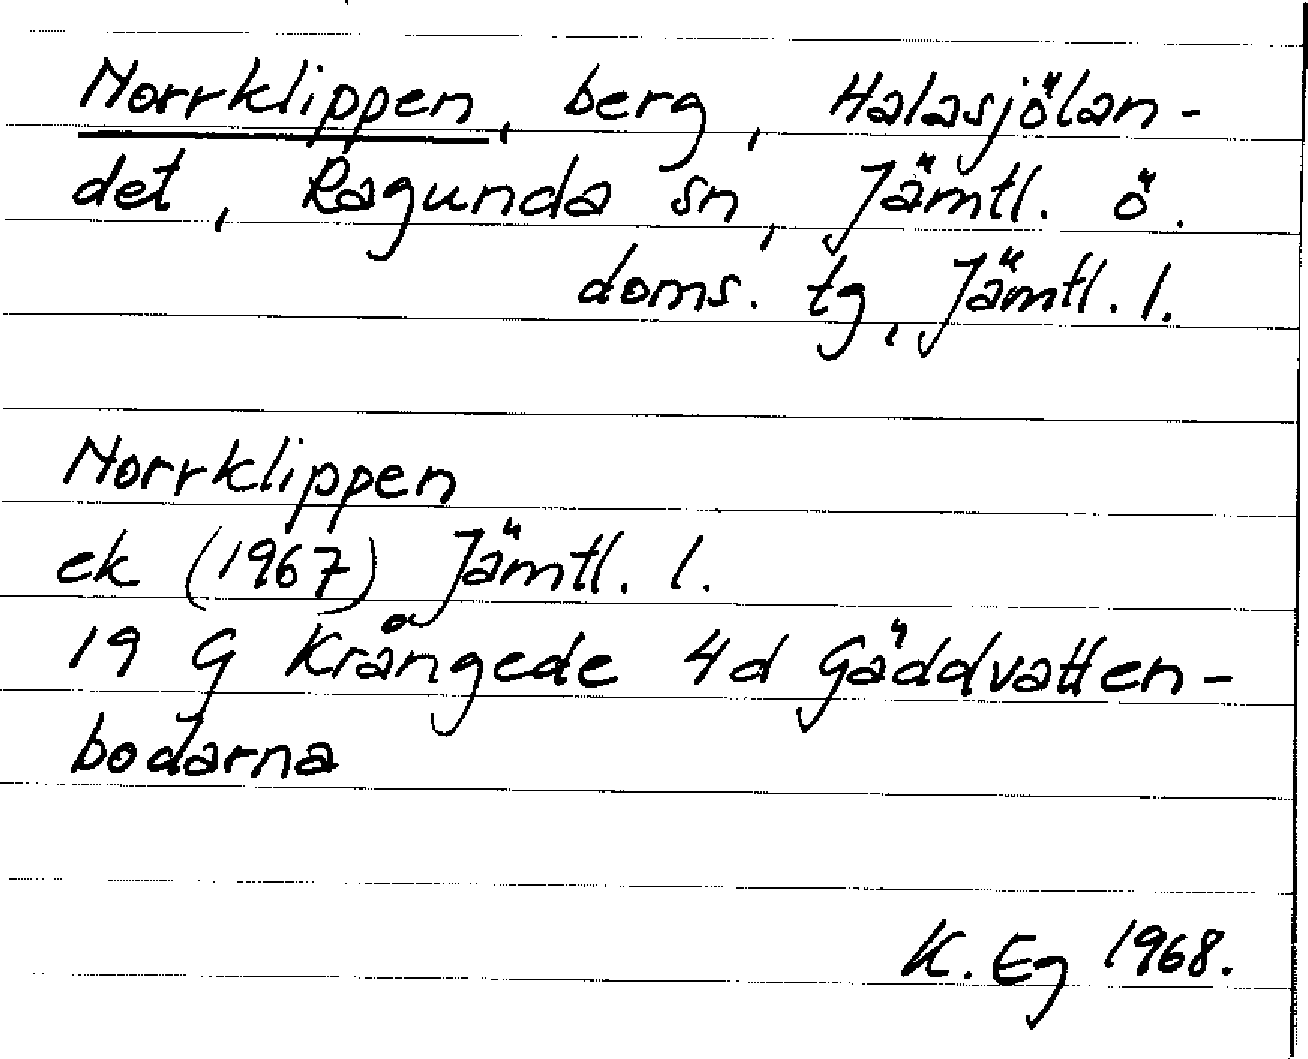 Norrklippen, berg, Halasjölan-
det, Ragunda sn, Jämtl. ö.
doms. tg, Jämtl. l.
Norrklippen
ek (1967) Jämtl. l.
19 G Krångede 4d Gäddvatten-
bodarna
K. Eg 1968.